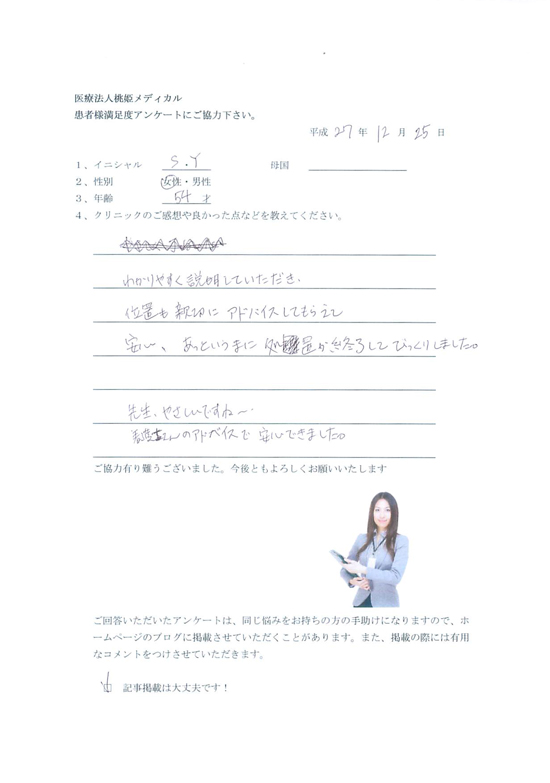 医療法人桃姫メディカル
患者様満足度アンケートにご協力下さい。
平成 27 年 12 月 25 日
1、イニシャル S.Y 母国
2、性別 女性・男性
3、年齢 54 才
4、クリニックのご感想や良かった点などを教えてください。
わかりやすく説明していただき、
位置も親切にアドバイスしてもらえて
安心、あっというまに処置が終了してびっくりしました。
先生、やさしいですね〜
看護士さんのアドバイスで安心できました。
ご協力有り難うございました。今後ともよろしくお願いいたします
ご回答いただいたアンケートは、同じ悩みをお持ちの方の手助けになりますので、ホ
ームページのブログに掲載させていただくことがあります。また、掲載の際には有用
なコメントをつけさせていただきます。
記事掲載は大丈夫です！